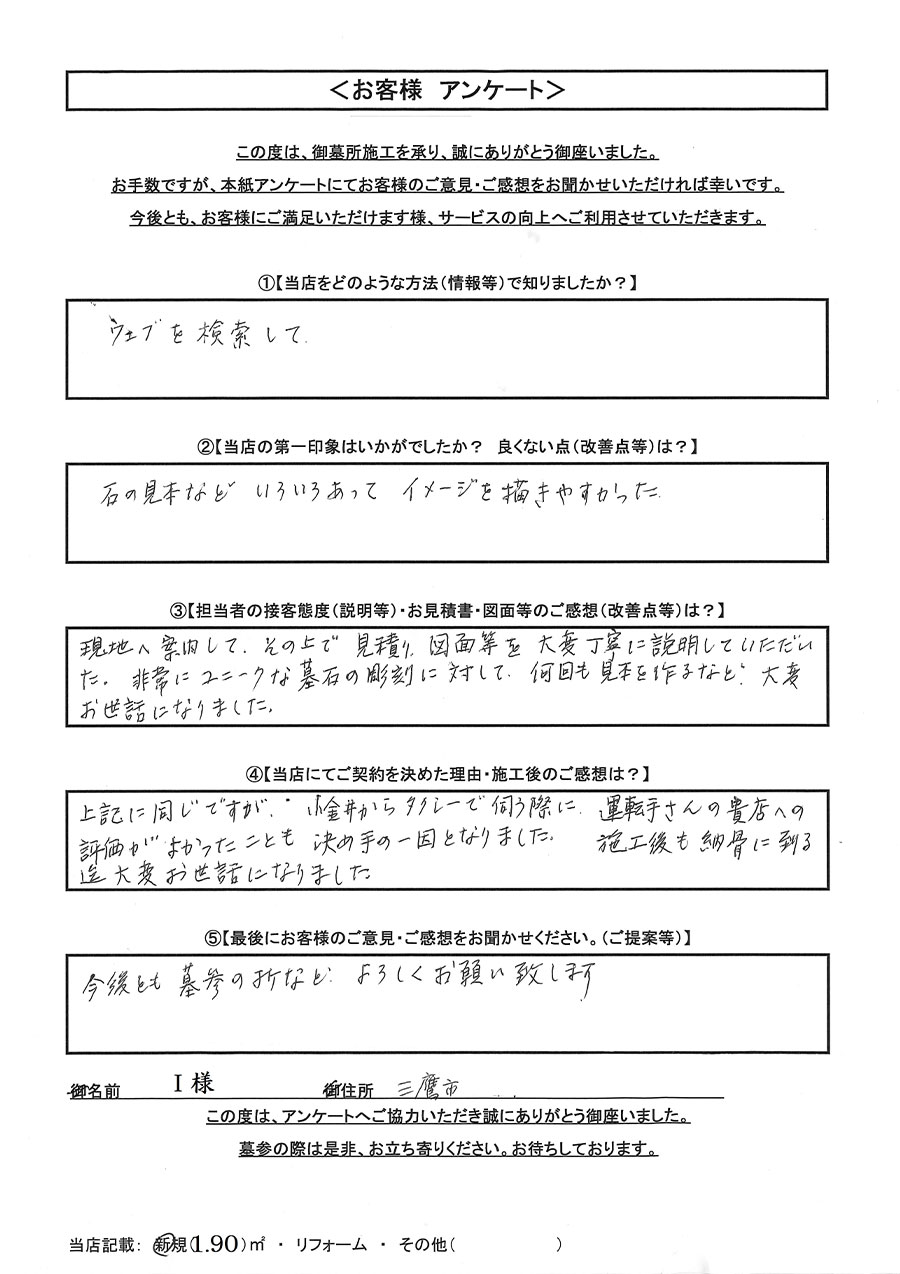 ＜お客様　アンケート＞
この度は、御墓所施工を承り、誠にありがとう御座いました。
お手数ですが、本紙アンケートにてお客様のご意見・ご感想をお聞かせいただければ幸いです。
今後とも、お客様にご満足いただけます様、サービスの向上へご利用させていただきます。
①【当店をどのような方法（情報等）で知りましたか？】
ウェブを検索して.
②【当店の第一印象はいかがでしたか？　良くない点（改善点等）は？】
石の見本など いろいろあって イメージを描きやすかった.
③【担当者の接客態度（説明等）・お見積書・図面等のご感想（改善点等）は？】
現地へ案内して、その上で 見積り、図面等を 大変丁寧に説明していただい
た。非常にユニークな墓石の彫刻に対して、何回も見本を作るなど、大変
お世話になりました。
④【当店にてご契約を決めた理由・施工後のご感想は？】
上記に同じですが、小金井からタクシーで伺う際に、運転手さんの貴店への
評価がよかったことも 決め手の一因となりました。 施工後も納骨に到る
迄大変お世話になりました
⑤【最後にお客様のご意見・ご感想をお聞かせください。（ご提案等）】
今後とも 墓参の折など、よろしくお願い致します
御名前　I 様　御住所　三鷹市
この度は、アンケートへご協力いただき誠にありがとう御座いました。
墓参の際は是非、お立ち寄りください。お待ちしております。
当店記載：　新規（1.90）㎡　・　リフォーム　・　その他（　　　　　　）